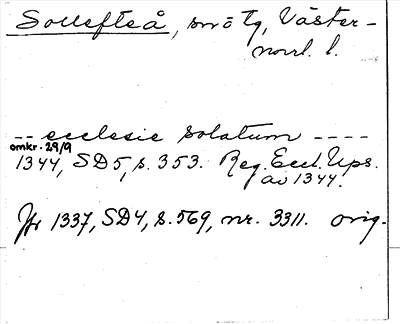 Sollefteå, sn o tg, Väster-
norrl. l.
-- ecclesie solatum ----
omkr. 29/9
1344, SD5, s. 353. Reg. Eccl. Ups.
av 1344.
Jfr 1337, SD4, s. 569, nr. 3311. orig.